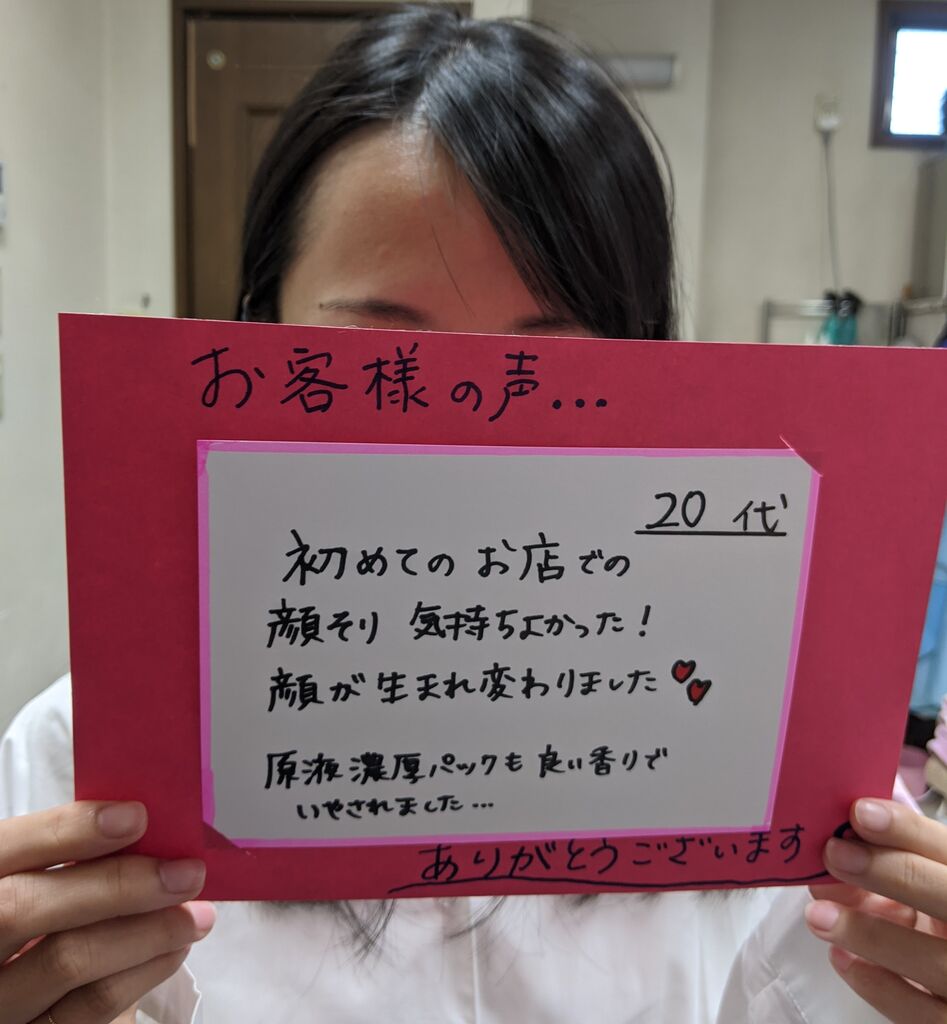 お客様の声...
20代
初めてのお店での
顔そり 気持ちよかった!
顔が生まれ変わりました
原液濃厚パックも良い香りで
いやされました...
ありがとうございます